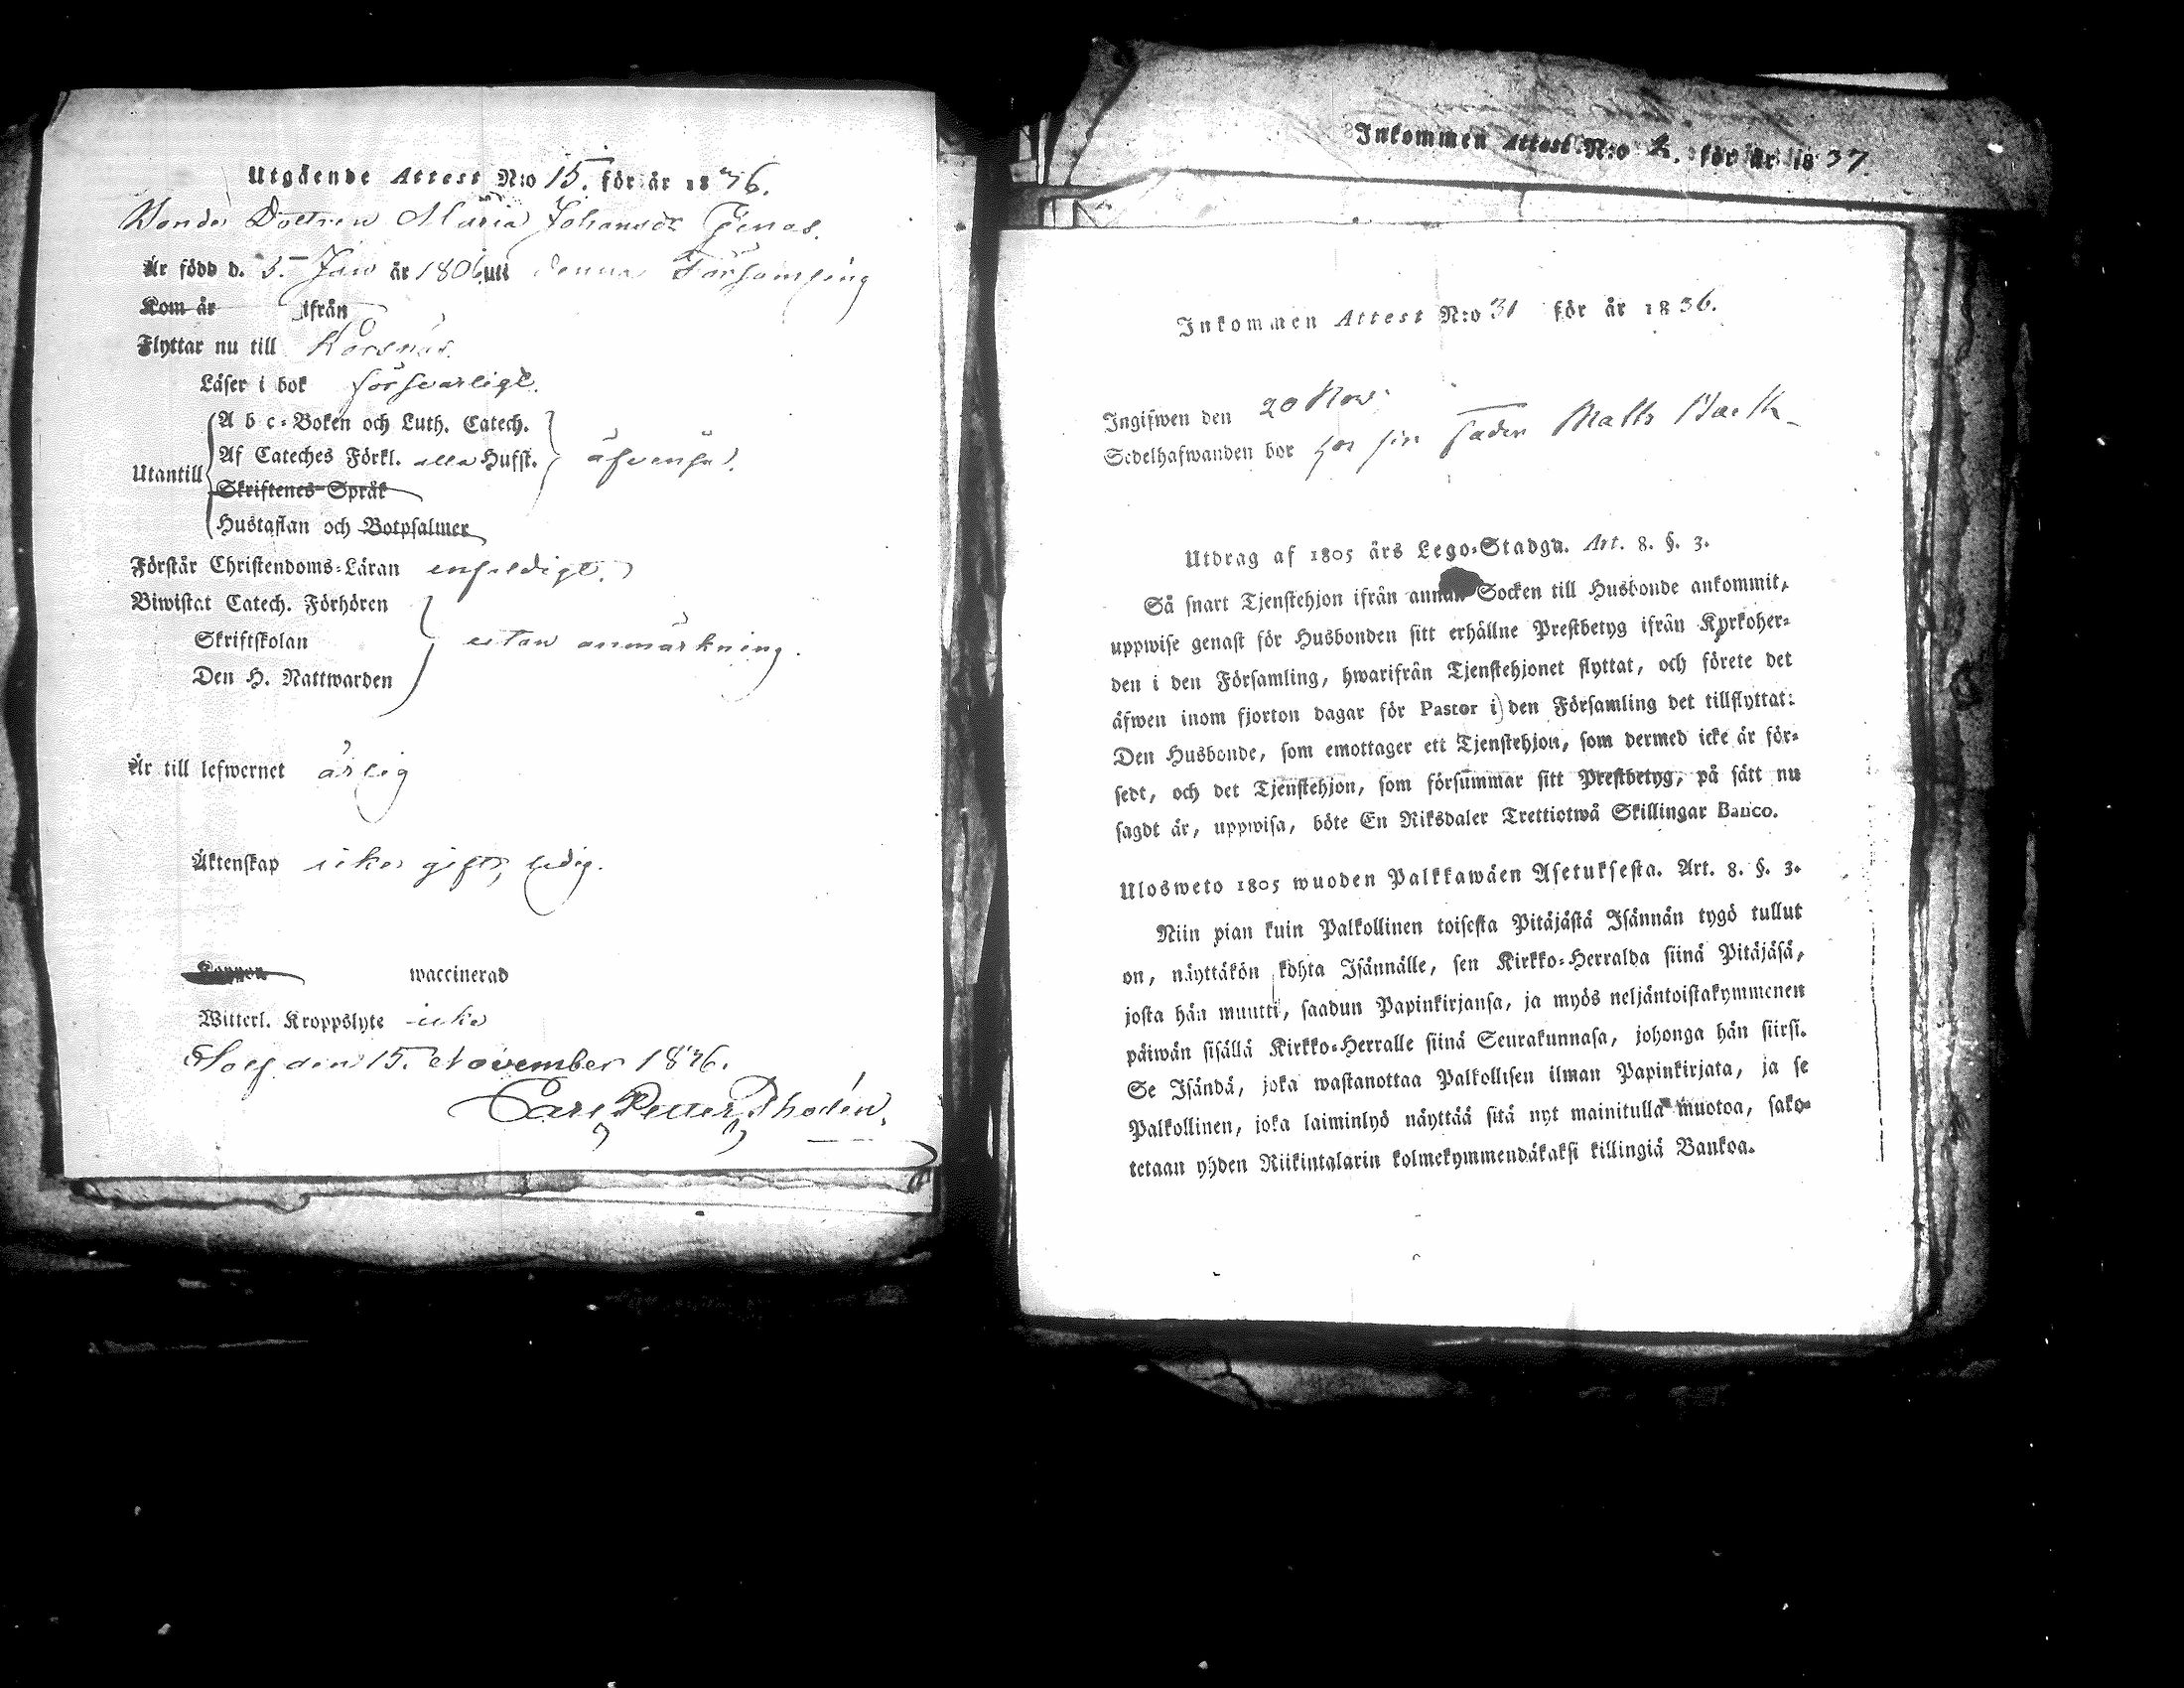 Utgående Attest N:o 15. för år 1836.
Bonde Dottren Maria Johansdr
Är född d. 5. Jan år 1806 uti denna Församling
Kom år ifrån
Flyttar nu till Korsnäs.
Läser i bok försvarligt.
Utantill
A b c-Boken och Luth. Catech.
Af Cateches Förkl. alla Hufst. äfvenså.
Skriftenes Språk
Hustaflan och Botpsalmer
Förstår Christendoms-Läran enfaldigt.
Biwistat Catech. Förhören
Skriftskolan utan anmärkning.
Den H. Nattwarden
Är till lefwernet ärlig
Äktenskap icke gift, ledig.
Koppor waccinerad
Witterl. Kroppslyte icke
Solf den 15. November 1836.
Carl Petter Rhodén.
Inkommen Attest N:o 2. för år 1837.
Inkommen Attest N:o 31 för år 1836.
Ingifwen den 20 Nov.
Sedelhafwanden bor hos sin fader Matts Back
Utdrag af 1805 års Lego-Stadga. Art. 8. §. 3.
Så snart Tjenstehjon ifrån annan Socken till Husbonde ankommit,
uppwise genast för Husbonden sitt erhållne Prestbetyg ifrån Kyrkoher-
den i den Församling, hwarifrån Tjenstehjonet flyttat, och förete det
äfwen inom fjorton dagar för Pastor i den Församling det tillflyttat:
Den Husbonde, som emottager ett Tjenstehjon, som dermed icke är för-
sedt, och det Tjenstehjon, som försummar sitt Prestbetyg, på sätt nu
sagdt är, uppwisa, böte En Riksdaler Trettiotwå Skillingar Banco.
Ulosweto 1805 wuoden Palkkawäen Asetuksesta. Art. 8. §. 3.
Niin pian kuin Palkollinen toisesta Pitäjästä Isännän tygö tullut
on, näyttäkön kohta Isännälle, sen Kirkko-Herralda siinä Pitäjäsä,
josta hän muutti, saadun Papinkirjansa, ja myös neljäntoistakymmenen
päiwän sisällä Kirkko-Herralle siinä Seurakunnasa, johonga hän siirsi.
Se Isändä, joka wastanottaa Palkollisen ilman Papinkirjata, ja se
Palkollinen, joka laiminlyö näyttää sitä nyt mainitulla muotoa, sako-
tetaan yhden Riikintalarin kolmekymmendäkaksi killingiä Bankoa.